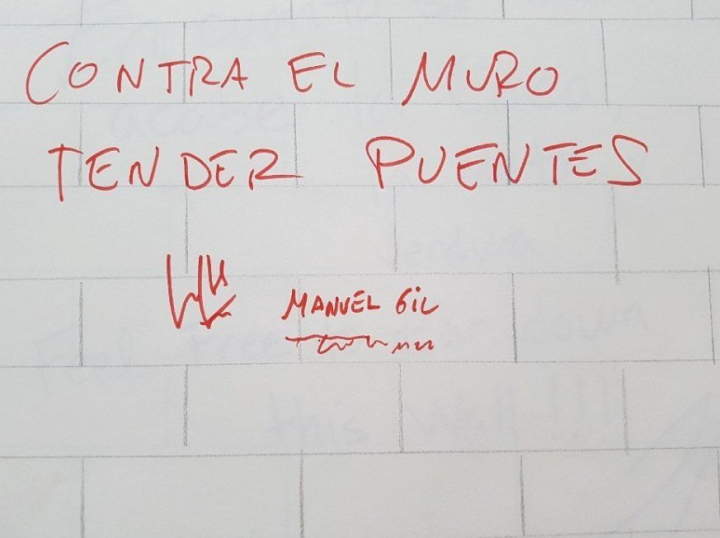 CONTRA EL MURO
TENDER PUENTES
MANUEL GIL